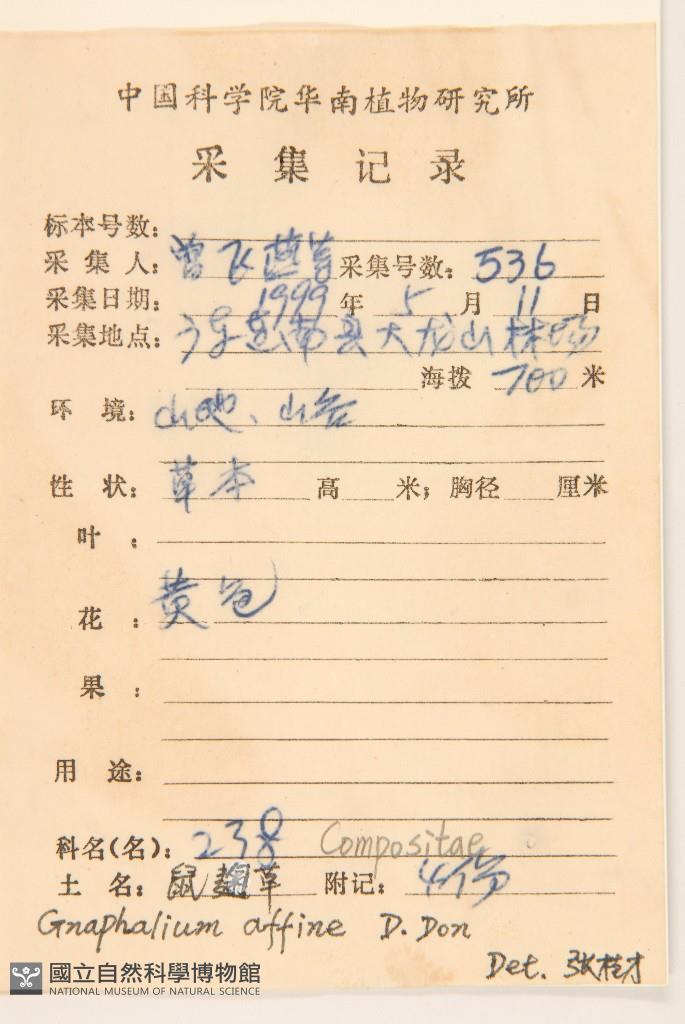 中国科学院华南植物研究所
采集记录
标本号数：
采集人：曾飞燕等 采集号数：536
采集日期：1999年5月11日
采集地点：广东连南县大龙山林场
海拨 700 米
环境：山地、山谷
性状：草本 高 米；胸径 厘米
叶：
花：黄色
果：
用途：
科名(名)：238 Compositae
土名：鼠麹草 附记：4份
Gnaphalium affine D. Don
Det. 张桂才
國立自然科學博物館
NATIONAL MUSEUM OF NATURAL SCIENCE